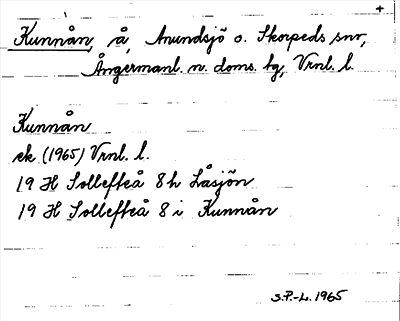 +
Kunnån, å, Anundsjö o. Skorpeds snr,
Ångermanl. n. doms. tg, Vrnl. l.
Kunnån
ek (1965) Vrnl. l.
19 H Sollefteå 8 h Låsjön
19 H Sollefteå 8 i Kunnån
S.P.-L. 1965